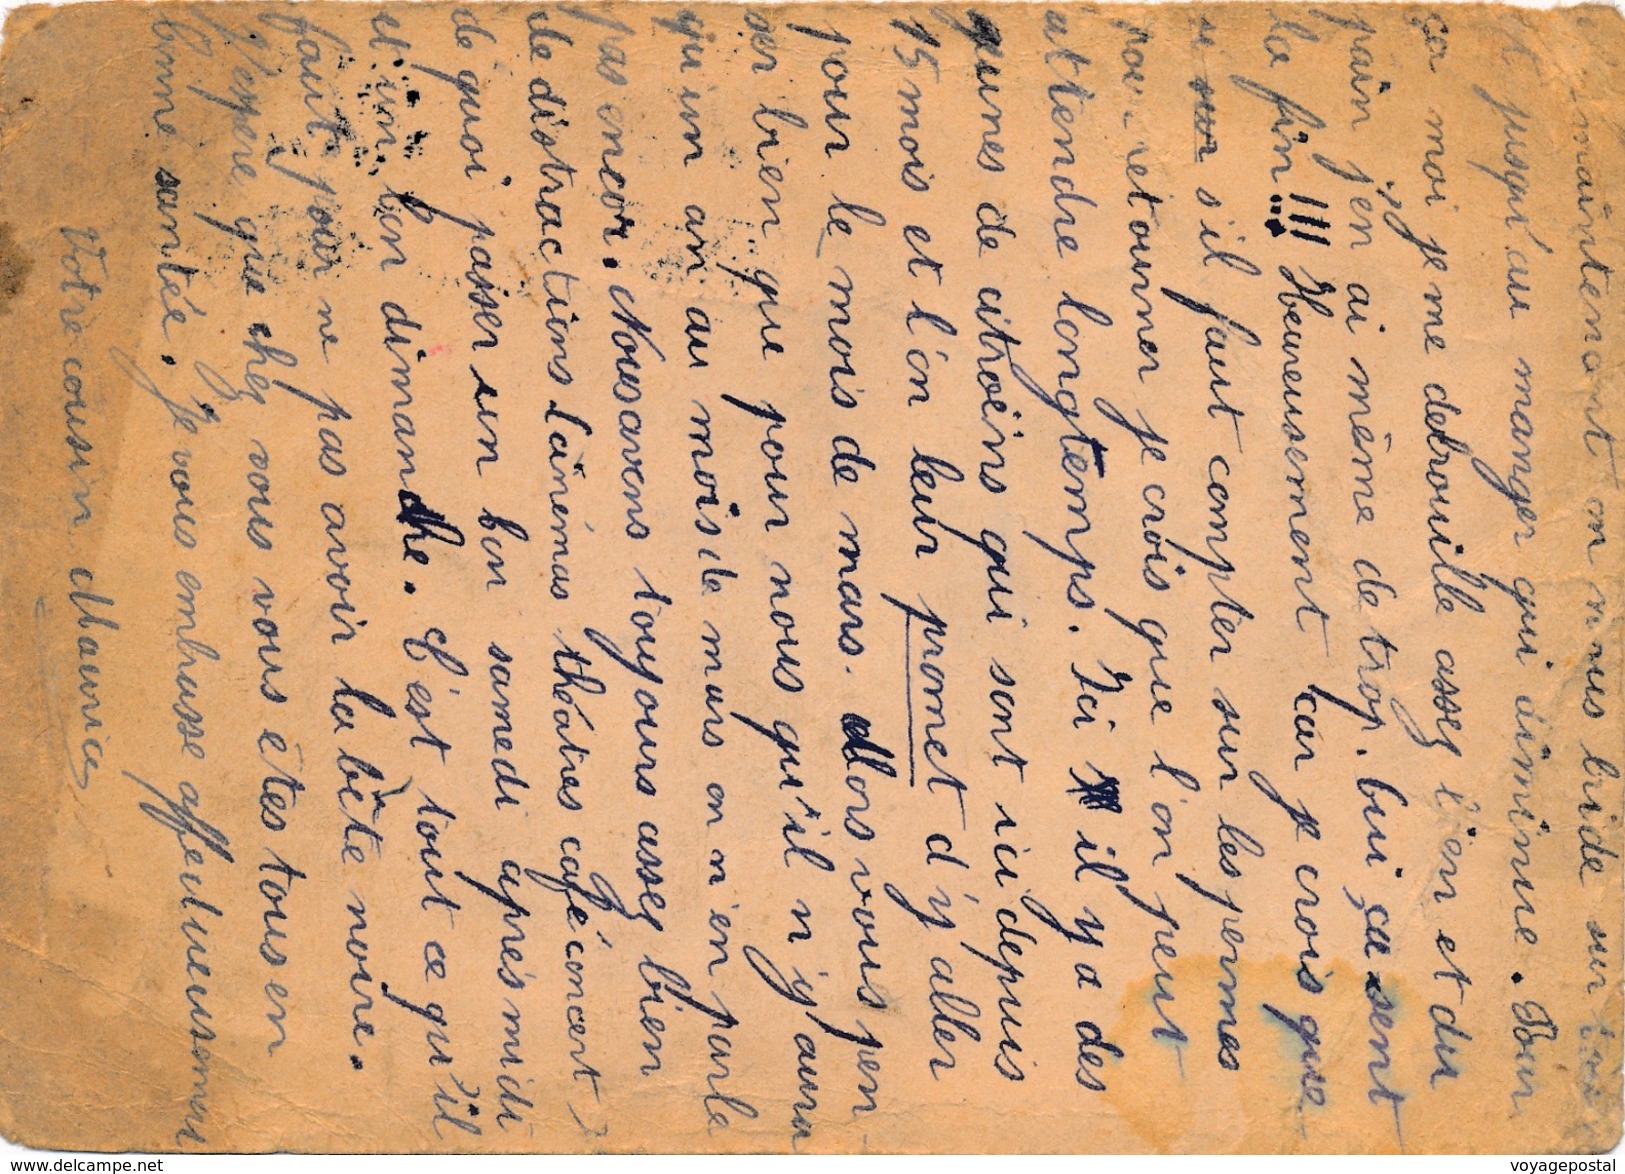 maintenant on nous bride sur tout
et jusqu'au manger qui diminue. Pour
ça moi je me debrouille assez bien et du
pain j'en ai même de trop. Oui ça sent
la fin !!! Heureusement car je crois que
si s'il faut compter sur les permes
pour retourner je crois que l'on peut
attendre longtemps. Ici il y a des
gunes de citroëns qui sont ici depuis
15 mois et l'on leur promet d'y aller
pour le mois de mars. Alors vous pen
ser bien que pour nous qu'il n'y aura
qu'un an au mois de mars on n'en parle
pas encor. Nous avons toujours assez bien
de distractions Cinémas théâtres café concert
de quoi passer un bon samedi après midi
et un bon dimanche. C'est tout ce qu'il
faut pour ne pas avoir la bête noire.
J'espere que chez vous vous êtes tous en
bonne santée. Je vous embrasse affectueusement
Votre cousin Maurice
voyagepostal
https://www.delcampe.net